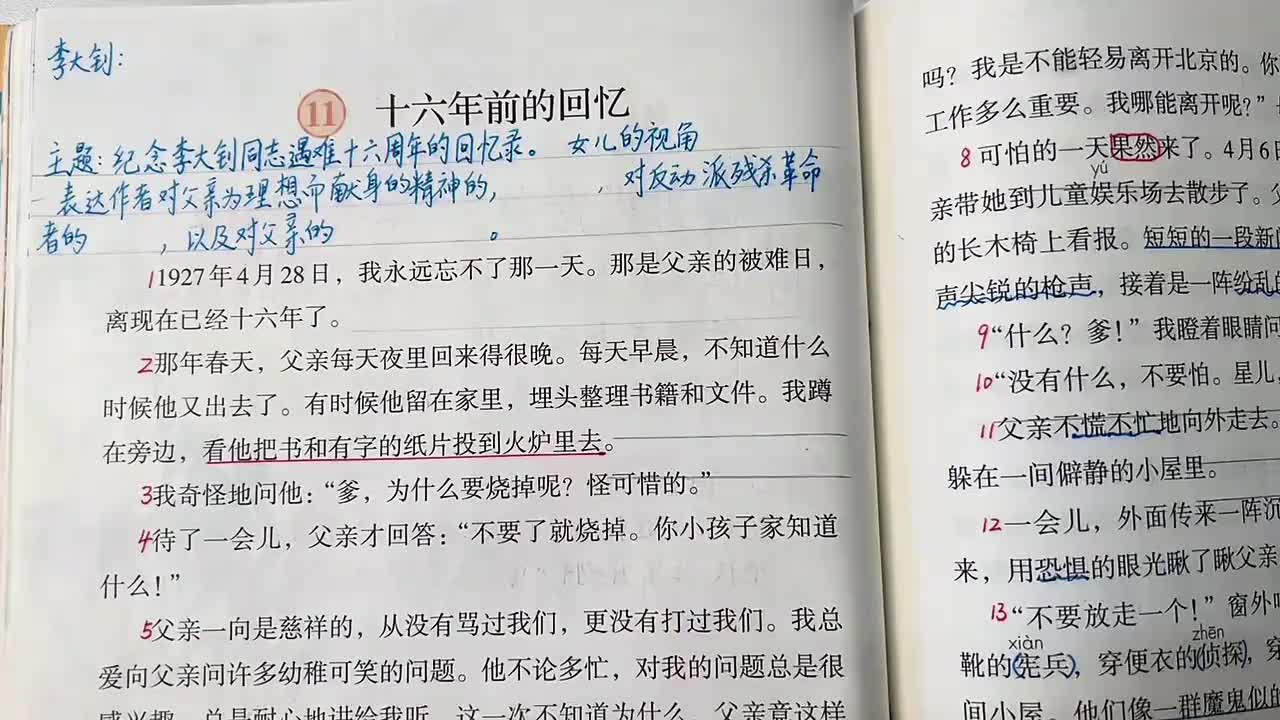 李大钊：
11 十六年前的回忆
主题：纪念李大钊同志遇难十六周年的回忆录。 女儿的视角
表达作者对父亲为理想而献身的精神的， ，对反动派残杀革命
者的 ，以及对父亲的 。
1 1927年4月28日，我永远忘不了那一天。那是父亲的被难日，
离现在已经十六年了。
2 那年春天，父亲每天夜里回来得很晚。每天早晨，不知道什么
时候他又出去了。有时候他留在家里，埋头整理书籍和文件。我蹲
在旁边，看他把书和有字的纸片投到火炉里去。
3 我奇怪地问他：“爹，为什么要烧掉呢？怪可惜的。”
4 待了一会儿，父亲才回答：“不要了就烧掉。你小孩子家知道
什么！”
5 父亲一向是慈祥的，从没有骂过我们，更没有打过我们。我总
爱向父亲问许多幼稚可笑的问题。他不论多忙，对我的问题总是很
感兴趣，总是耐心地讲给我听。这一次不知道为什么，父亲竟这样
吗？我是不能轻易离开北京的。你
工作多么重要。我哪能离开呢？”
8 可怕的一天果然来了。4月6日
yú
亲带她到儿童娱乐场去散步了。父
的长木椅上看报。短短的一段新闻
声尖锐的枪声，接着是一阵纷乱的
9 “什么？爹！”我瞪着眼睛问
10 “没有什么，不要怕。星儿，
11 父亲不慌不忙地向外走去。
躲在一间僻静的小屋里。
12 一会儿，外面传来一阵沉
来，用恐惧的眼光瞅了瞅父亲
13 “不要放走一个！”窗外
xiàn zhēn
靴的宪兵，穿便衣的侦探，穿
间小屋。他们像一群魔鬼似的